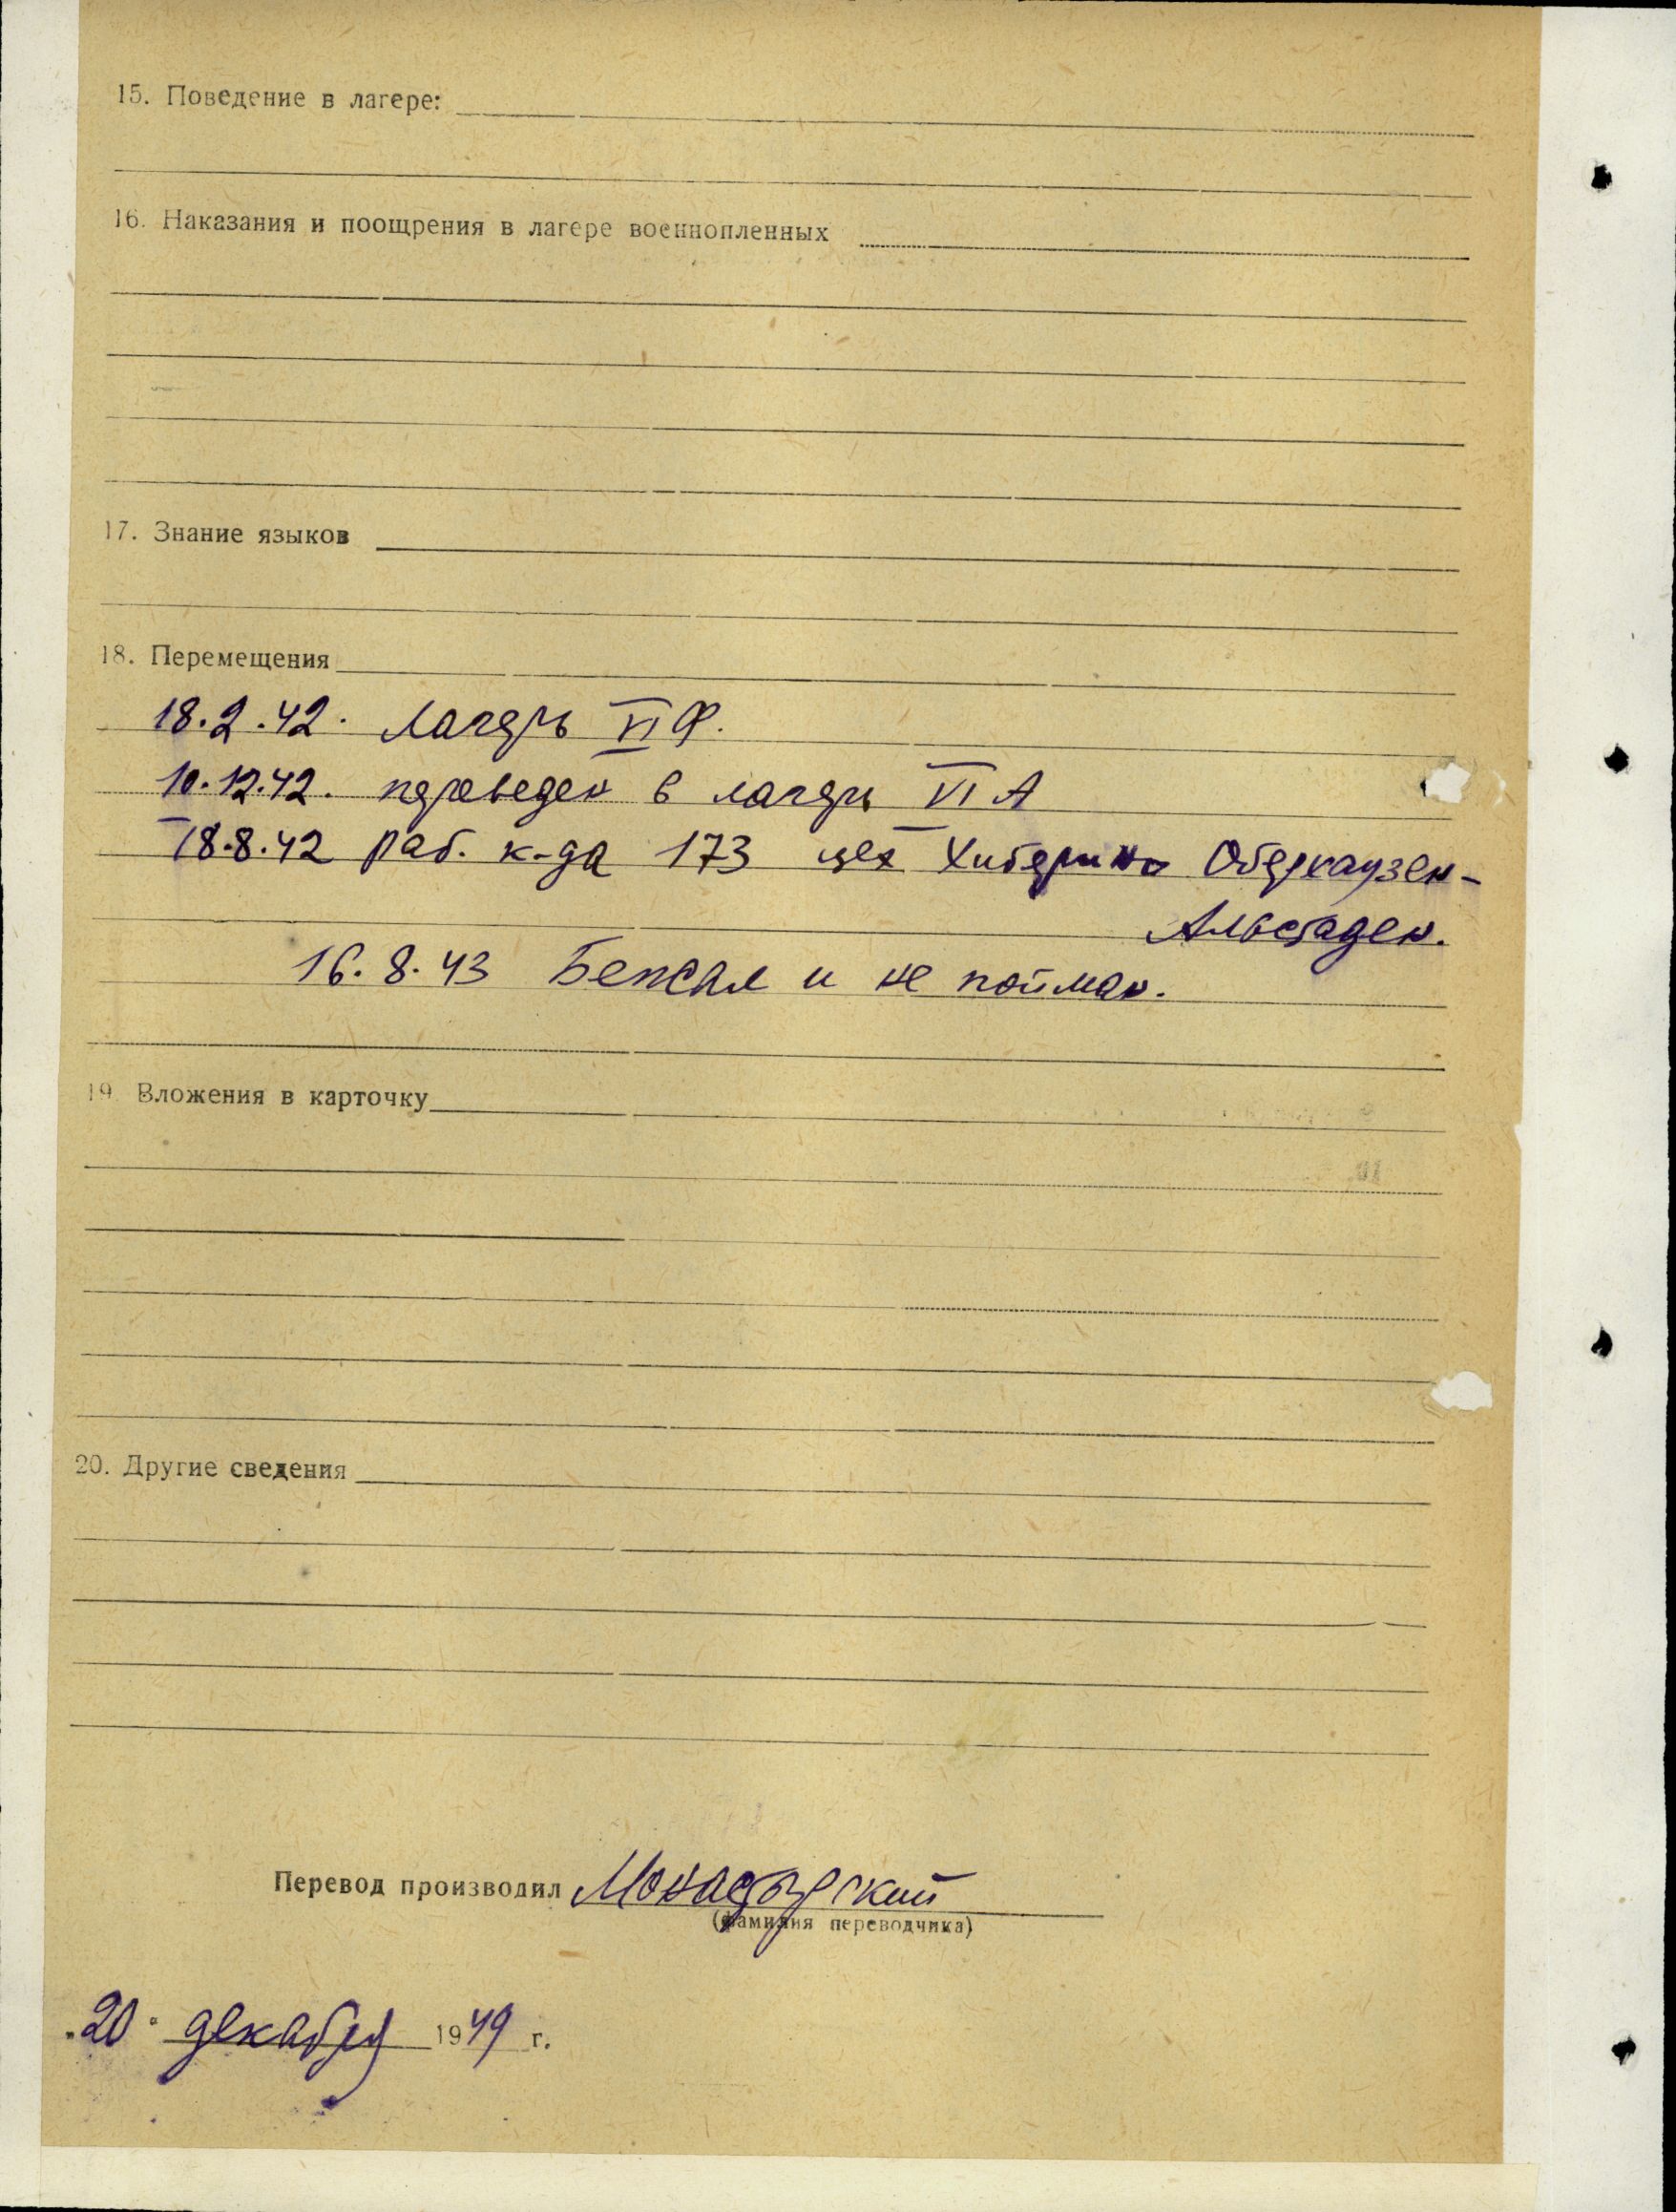 15. Поведение в лагере:
16. Наказания и поощрения в лагере военнопленных
17. Знание языков
18. Перемещения
18.2.42. Лагерь VI Ф.
10.12.42. переведен в лагерь VI А
18.8.42 раб. к-да 173 цех Хиберниа Оберхаузен-
Альстаден.
16.8.43 Бежал и не пойман.
19. Вложения в карточку
20. Другие сведения
Перевод производил Монастырский
(фамилия переводчика)
"20" декабря 1949 г.